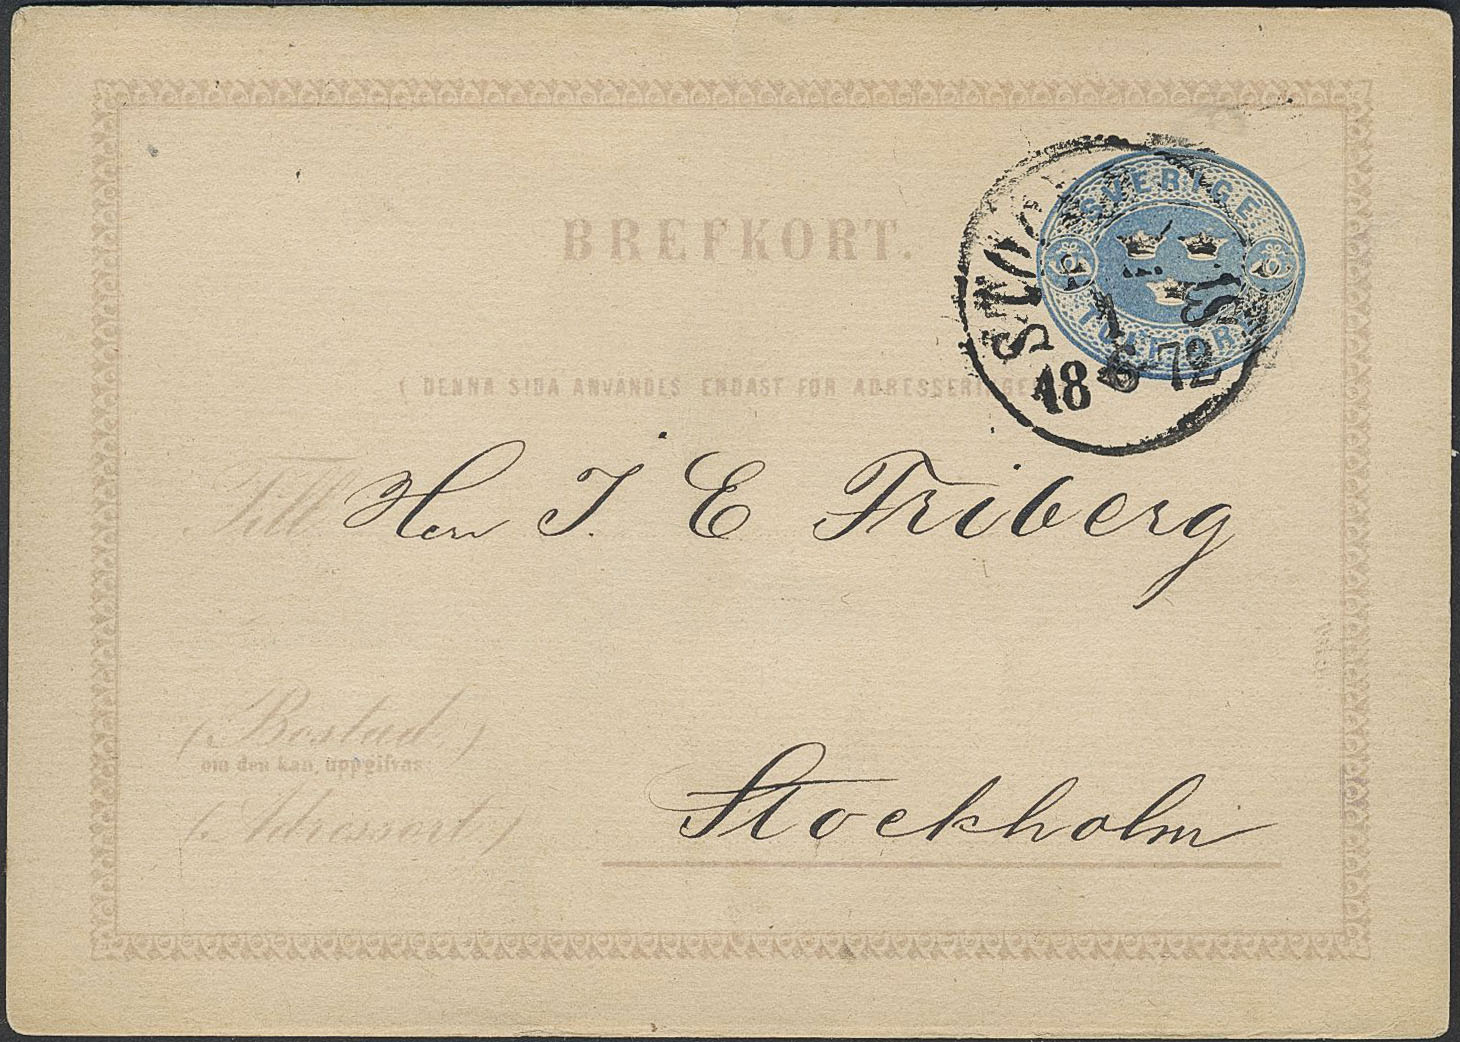 SVERIGE
TOLF ÖRE
BREFKORT.
1
18 6 72
( DENNA SIDA ANVÄNDES ENDAST FÖR ADRESSERINGEN
Till Herr J. E Friberg
( Bostad, )
om den kan uppgifvas:
Stockholm
( Adressort )